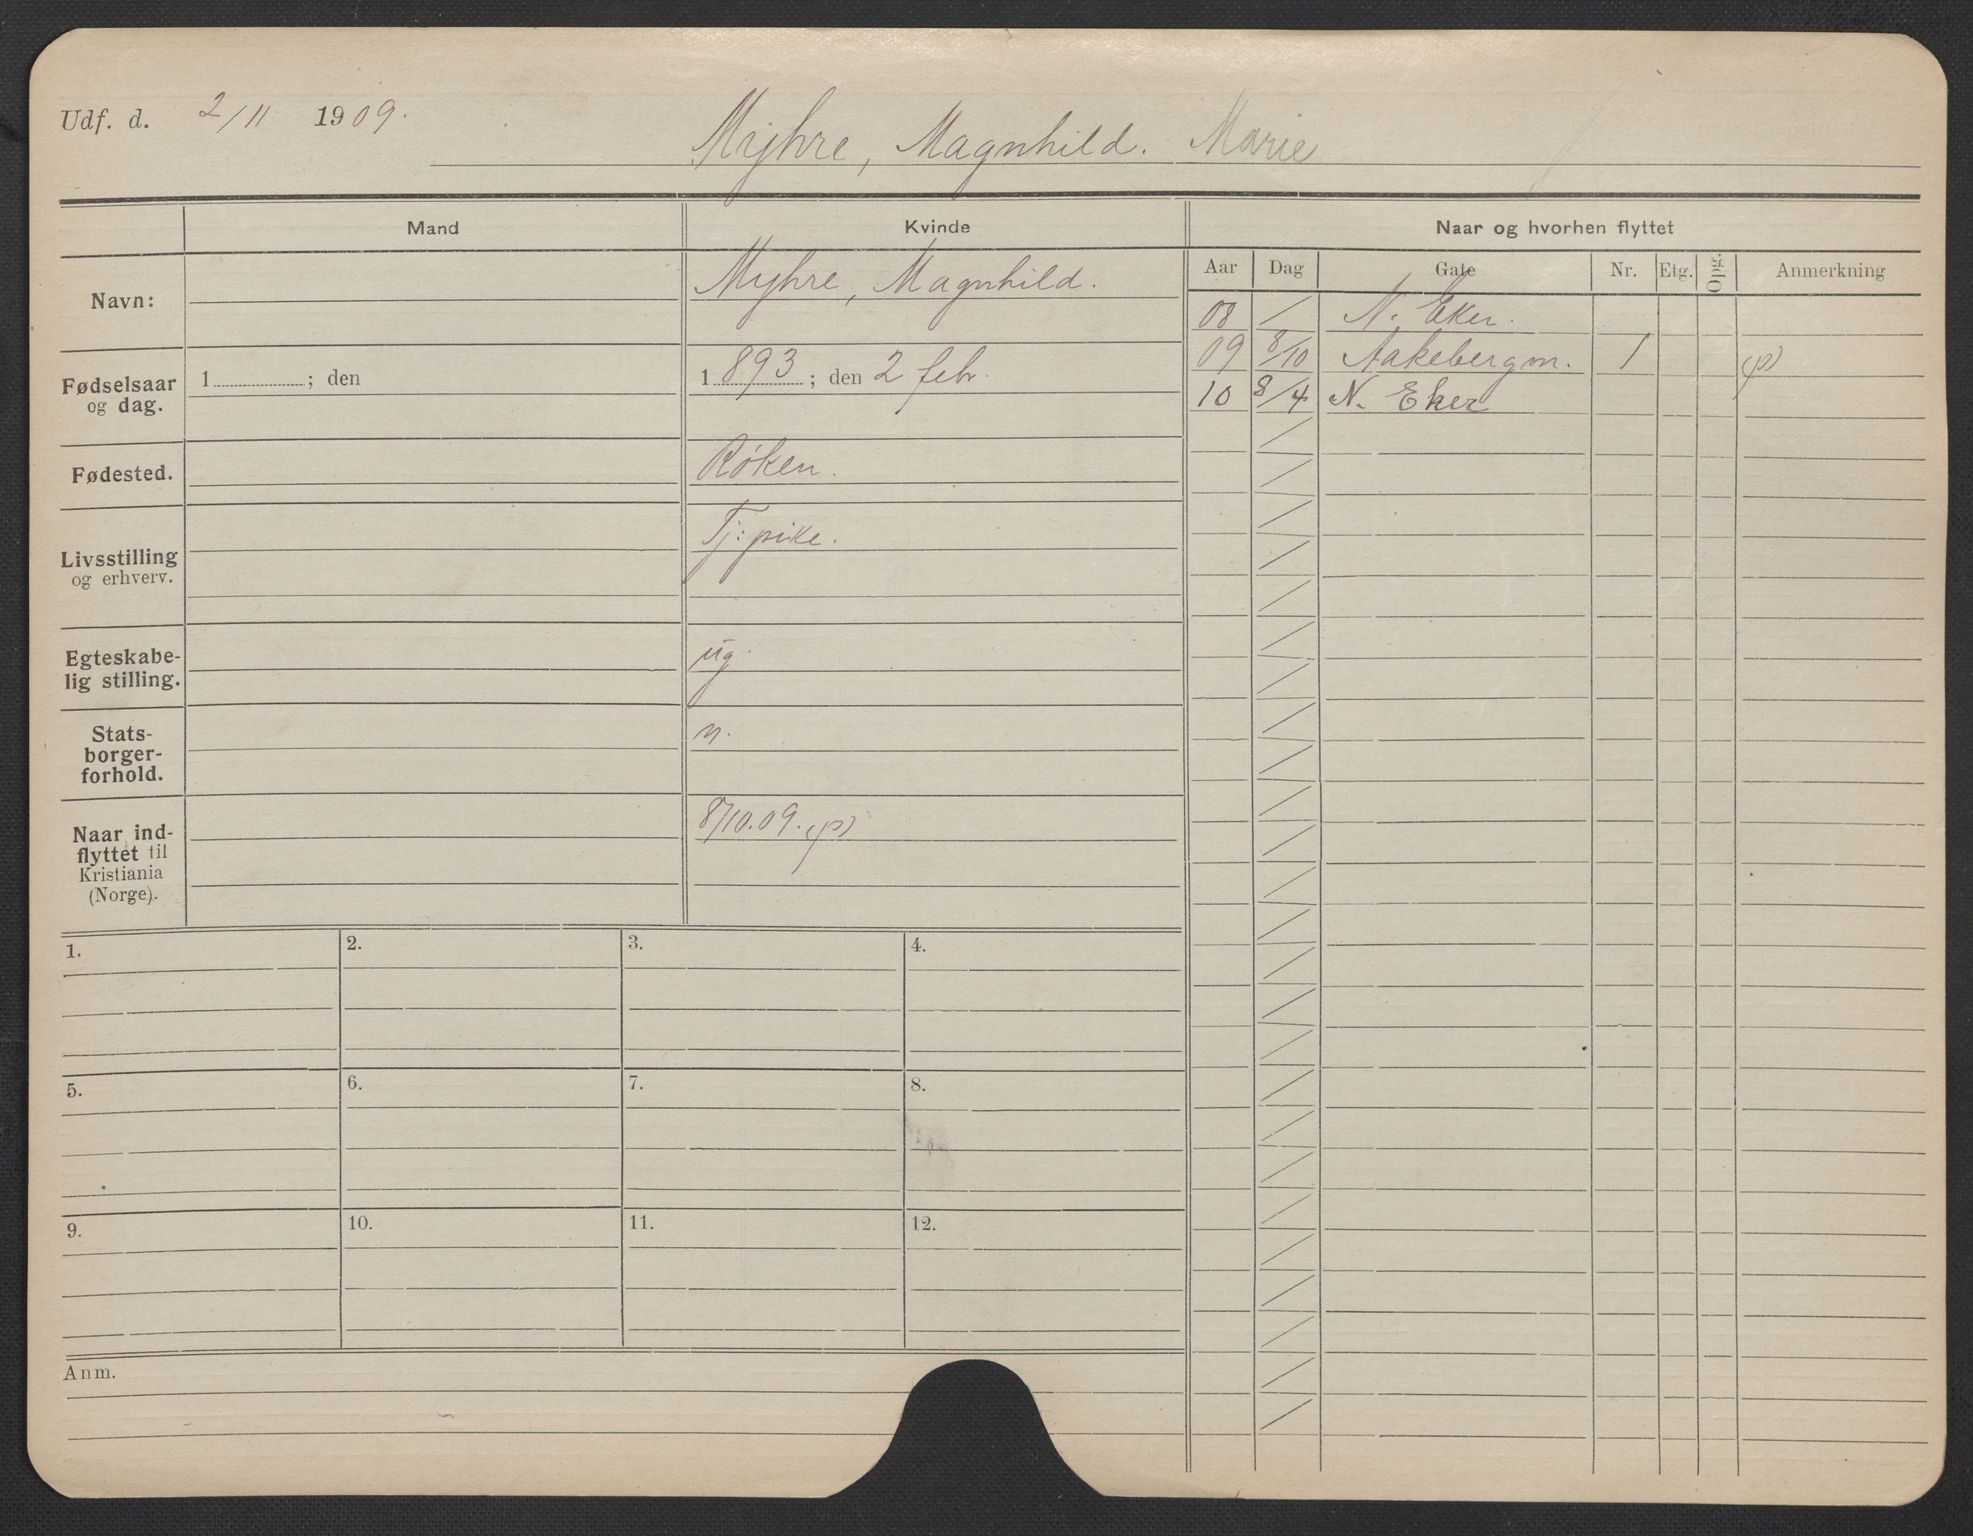 Udf. d. 2/11 1909.
Myhre, Magnhild. Marie
Mand Kvinde Naar og hvorhen flyttet
Aar Dag Gate Nr. Etg. Opg. Anmerkning
Navn: Myhre, Magnhild.
08 / N. Eker.
09 8/10 Aakebergv. 1 (p)
10 8/4 N. Eker
Fødselsaar
og dag.
1 ; den 1 893 ; den 2 febr.
Fødested. Røken.
Livsstilling
og erhverv.
Tj: pike.
Egteskabe-
lig stilling.
ug.
Stats-
borger-
forhold.
n.
Naar ind-
flyttet til
Kristiania
(Norge).
8/10.09. (p)
1. 2. 3. 4.
5. 6. 7. 8.
9. 10. 11. 12.
Anm.